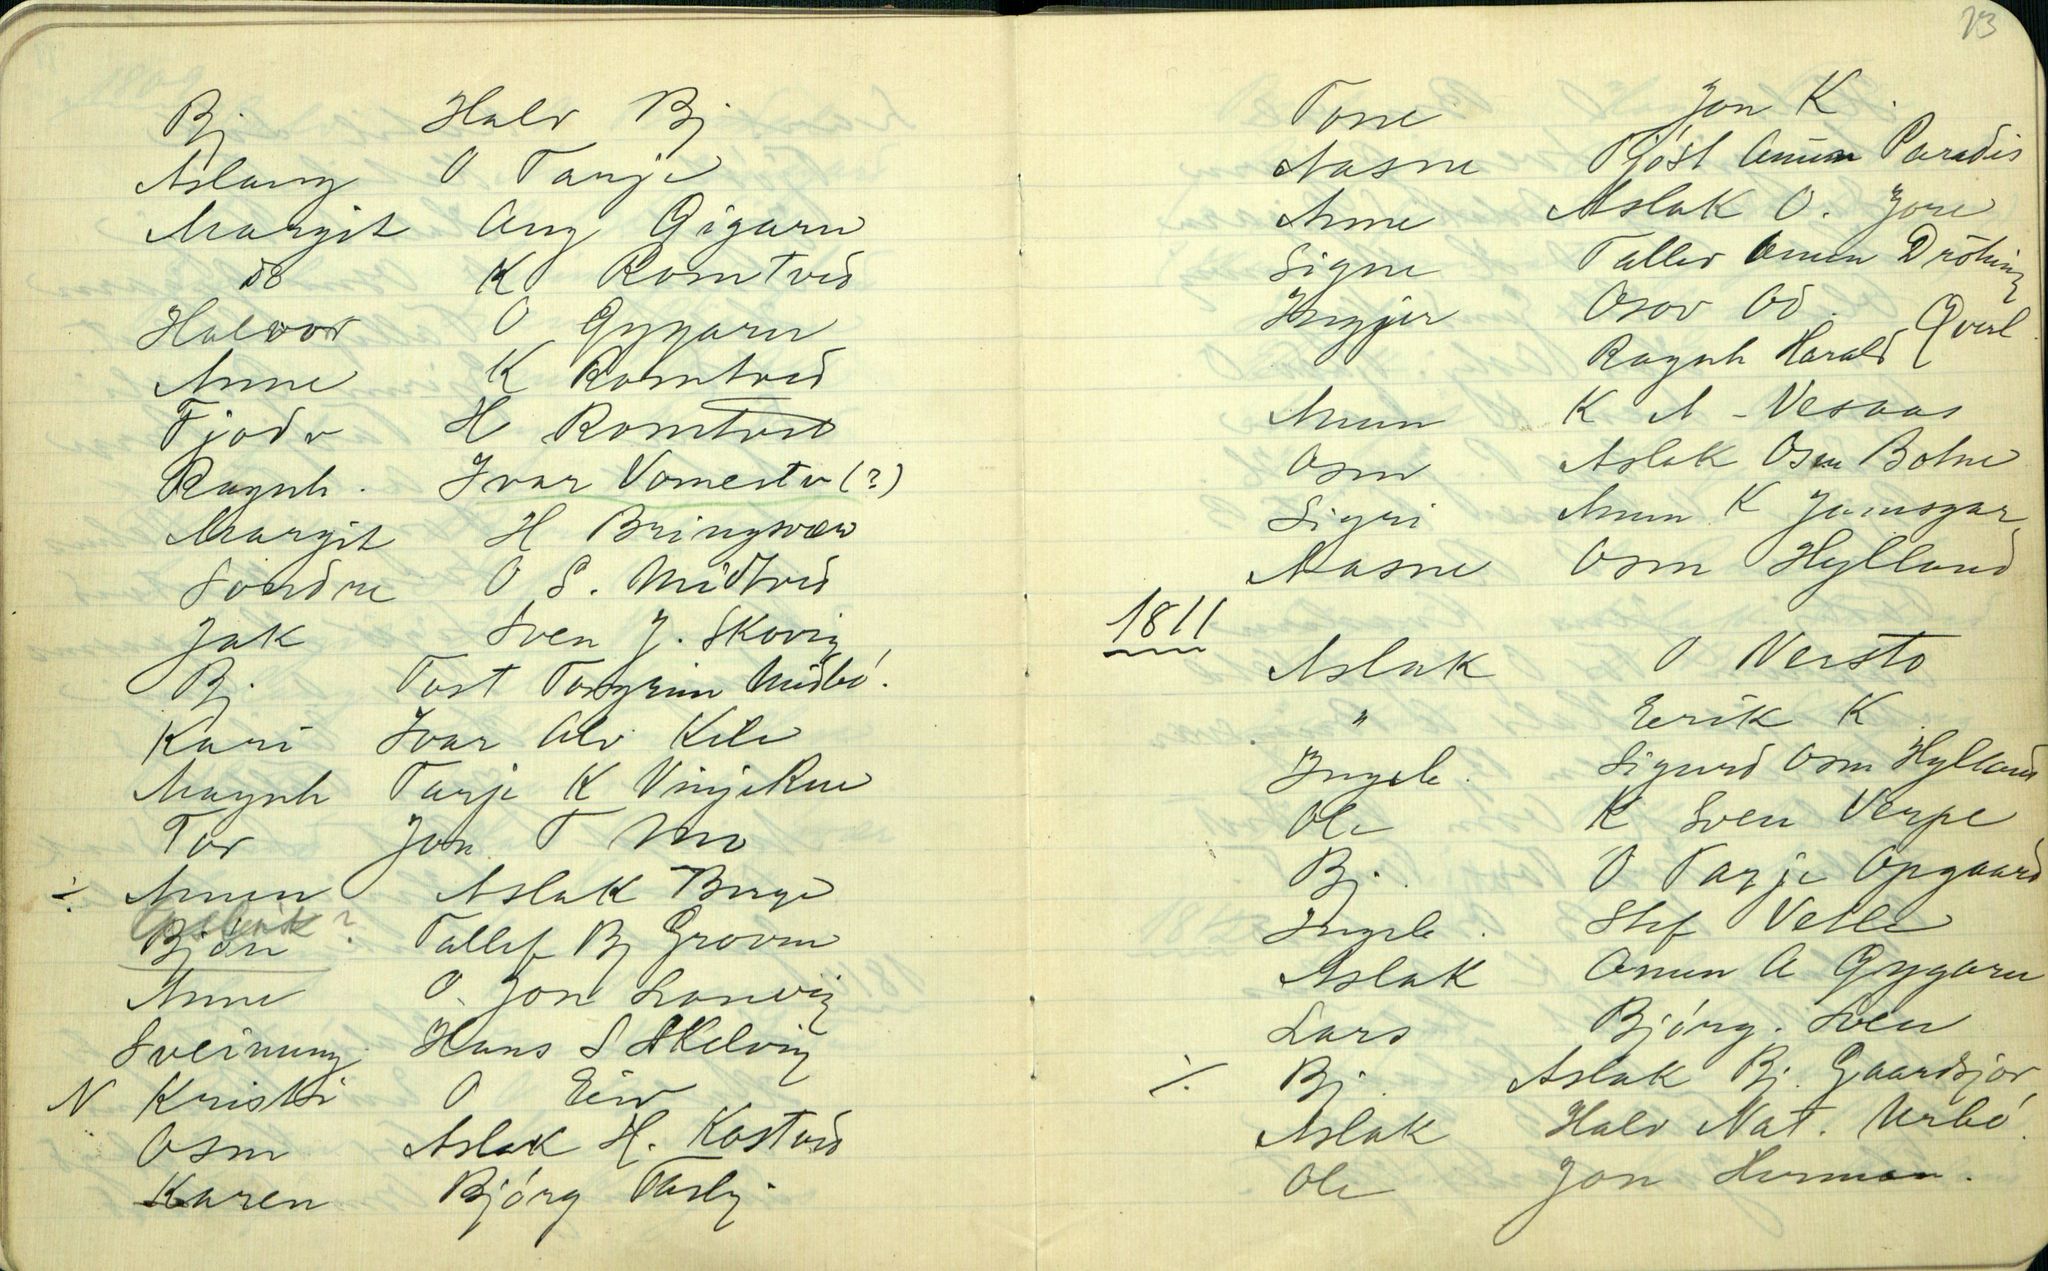 Bj. Halv Bj
Aslaug O Tarje
Margit Aug Gigarn
do K Romtvid
Halvor O Gygarn
Anne K Romtvid
Tjodv H Romtvet
Ragnh. Ivar Vomestv (?)
Margit H Bringsvær
Sondre O S. Midtvid
Jak Sven J. Skovig
Bj. Tost Torgrim Midbö.
Kari Ivar Alv Kile
Magnh Tarje K VinjeRue
Tor Jon T Mo
÷ Anun Aslak Berge
Björn ? Tallef Bj Groven
Anne O. Jon Lonvig
Sveinung Hans S Skelvig
N Kristi O Eiv
Osm Aslak H. Kostvid
Karen Björg
23
Tone Jon K.
Aasne Tjöst Anun Paradis
Anne Aslak O. Jore
Signe Tallev Anun Dröting
Inggjer Osov Od.
Ragnh Harald Qverl
Anun K A - Vesaas
Osm Aslak Osm Botne
Sigri Anun K Jamsgar
Aasne Osm Hylland
1811
Aslak O Versto
" Eerik K
Ingeb. Sigurd Osm Hylland
Ole K Sven Verpe
Bj. O Tarje Opgaard
Ingeb. Stef Velle
Aslak Anun A Gygarn
Lars Björg. Sven
÷ Bj. Aslak Bj. Gaardsjor
Aslak Halv Nat. Urbö.
Ole Jon Herman.